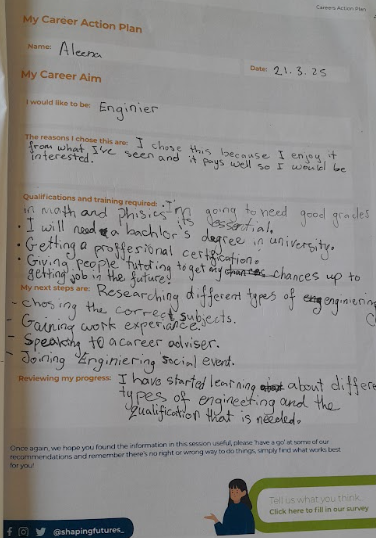 Careers Action Plan
My Career Action Plan
Name: Aleena
Date: 21.3.25
My Career Aim
I would like to be: Enginier
The reasons I chose this are: I chose this because I enjoy it
from what I've seen and it pays well so I would be
interested.
Qualifications and training required: • I'm going to need good grades
in math and phisics its essential.
• I will need a bachlor's degree in university.
• Getting a proffesional certification.
• Giving people tutoring to get my chances up to
getting job in the future!
My next steps are: Researching different types of engineering
- chosing the correct subjects.
- Gaining work experiance.
- Speaking to a career adviser.
- Joining Enginiering social event.
Reviewing my progress: I have started learning about differe
types of engineeting and the
qualification that is needed.
Once again, we hope you found the information in this session useful, please 'have a go' at some of our
recommendations and remember there's no right or wrong way to do things, simply find what works best
for you!
Tell us what you think...
Click here to fill in our survey
@shapingfutures_